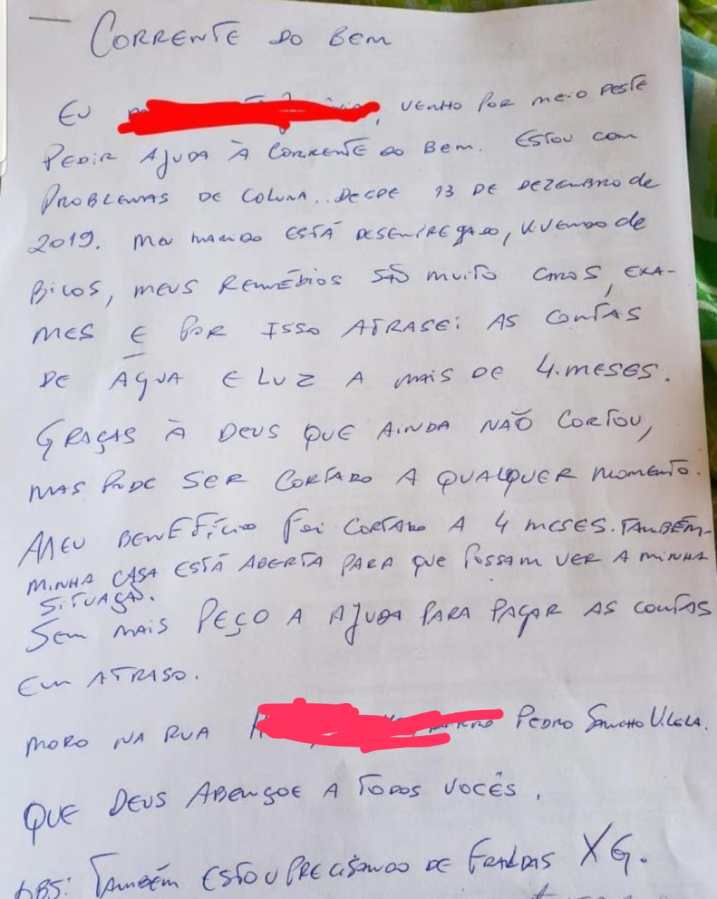 CORRENTE DO BEM
EU , VENHO POR MEIO DESTE
PEDIR AJUDA À CORRENTE DO BEM. ESTOU COM
PROBLEMAS DE COLUNA.. DECDE 13 DE DEZEMBRO de
2019. MEU MARIDO ESTÁ DESEMPREGADO, VIVENDO de
BICOS, MEUS REMÉDIOS SÃO MUITO CAROS, EXA-
MES E POR ISSO ATRASEI AS CONTAS
DE ÁGUA E LUZ A MAIS DE 4.MESES.
GRAÇAS À DEUS QUE AINDA NÃO CORTOU,
MAS PODE SER CORTADO A QUALQUER MOMENTO.
MEU BENEFÍCIO FOI CORTADO A 4 MESES. TAMBÉM-
MINHA CASA ESTÁ ABERTA PARA QUE POSSAM VER A MINHA
SITUAÇÃO.
SEM MAIS PEÇO A AJUDA PARA PAGAR AS CONTAS
EM ATRASO.
MORO NA RUA PEDRO SANCHO VILELA.
QUE DEUS ABENÇOE A TODOS VOCÊS.
OBS: TAMBÉM ESTOU PRECISANDO DE FRALDAS XG.